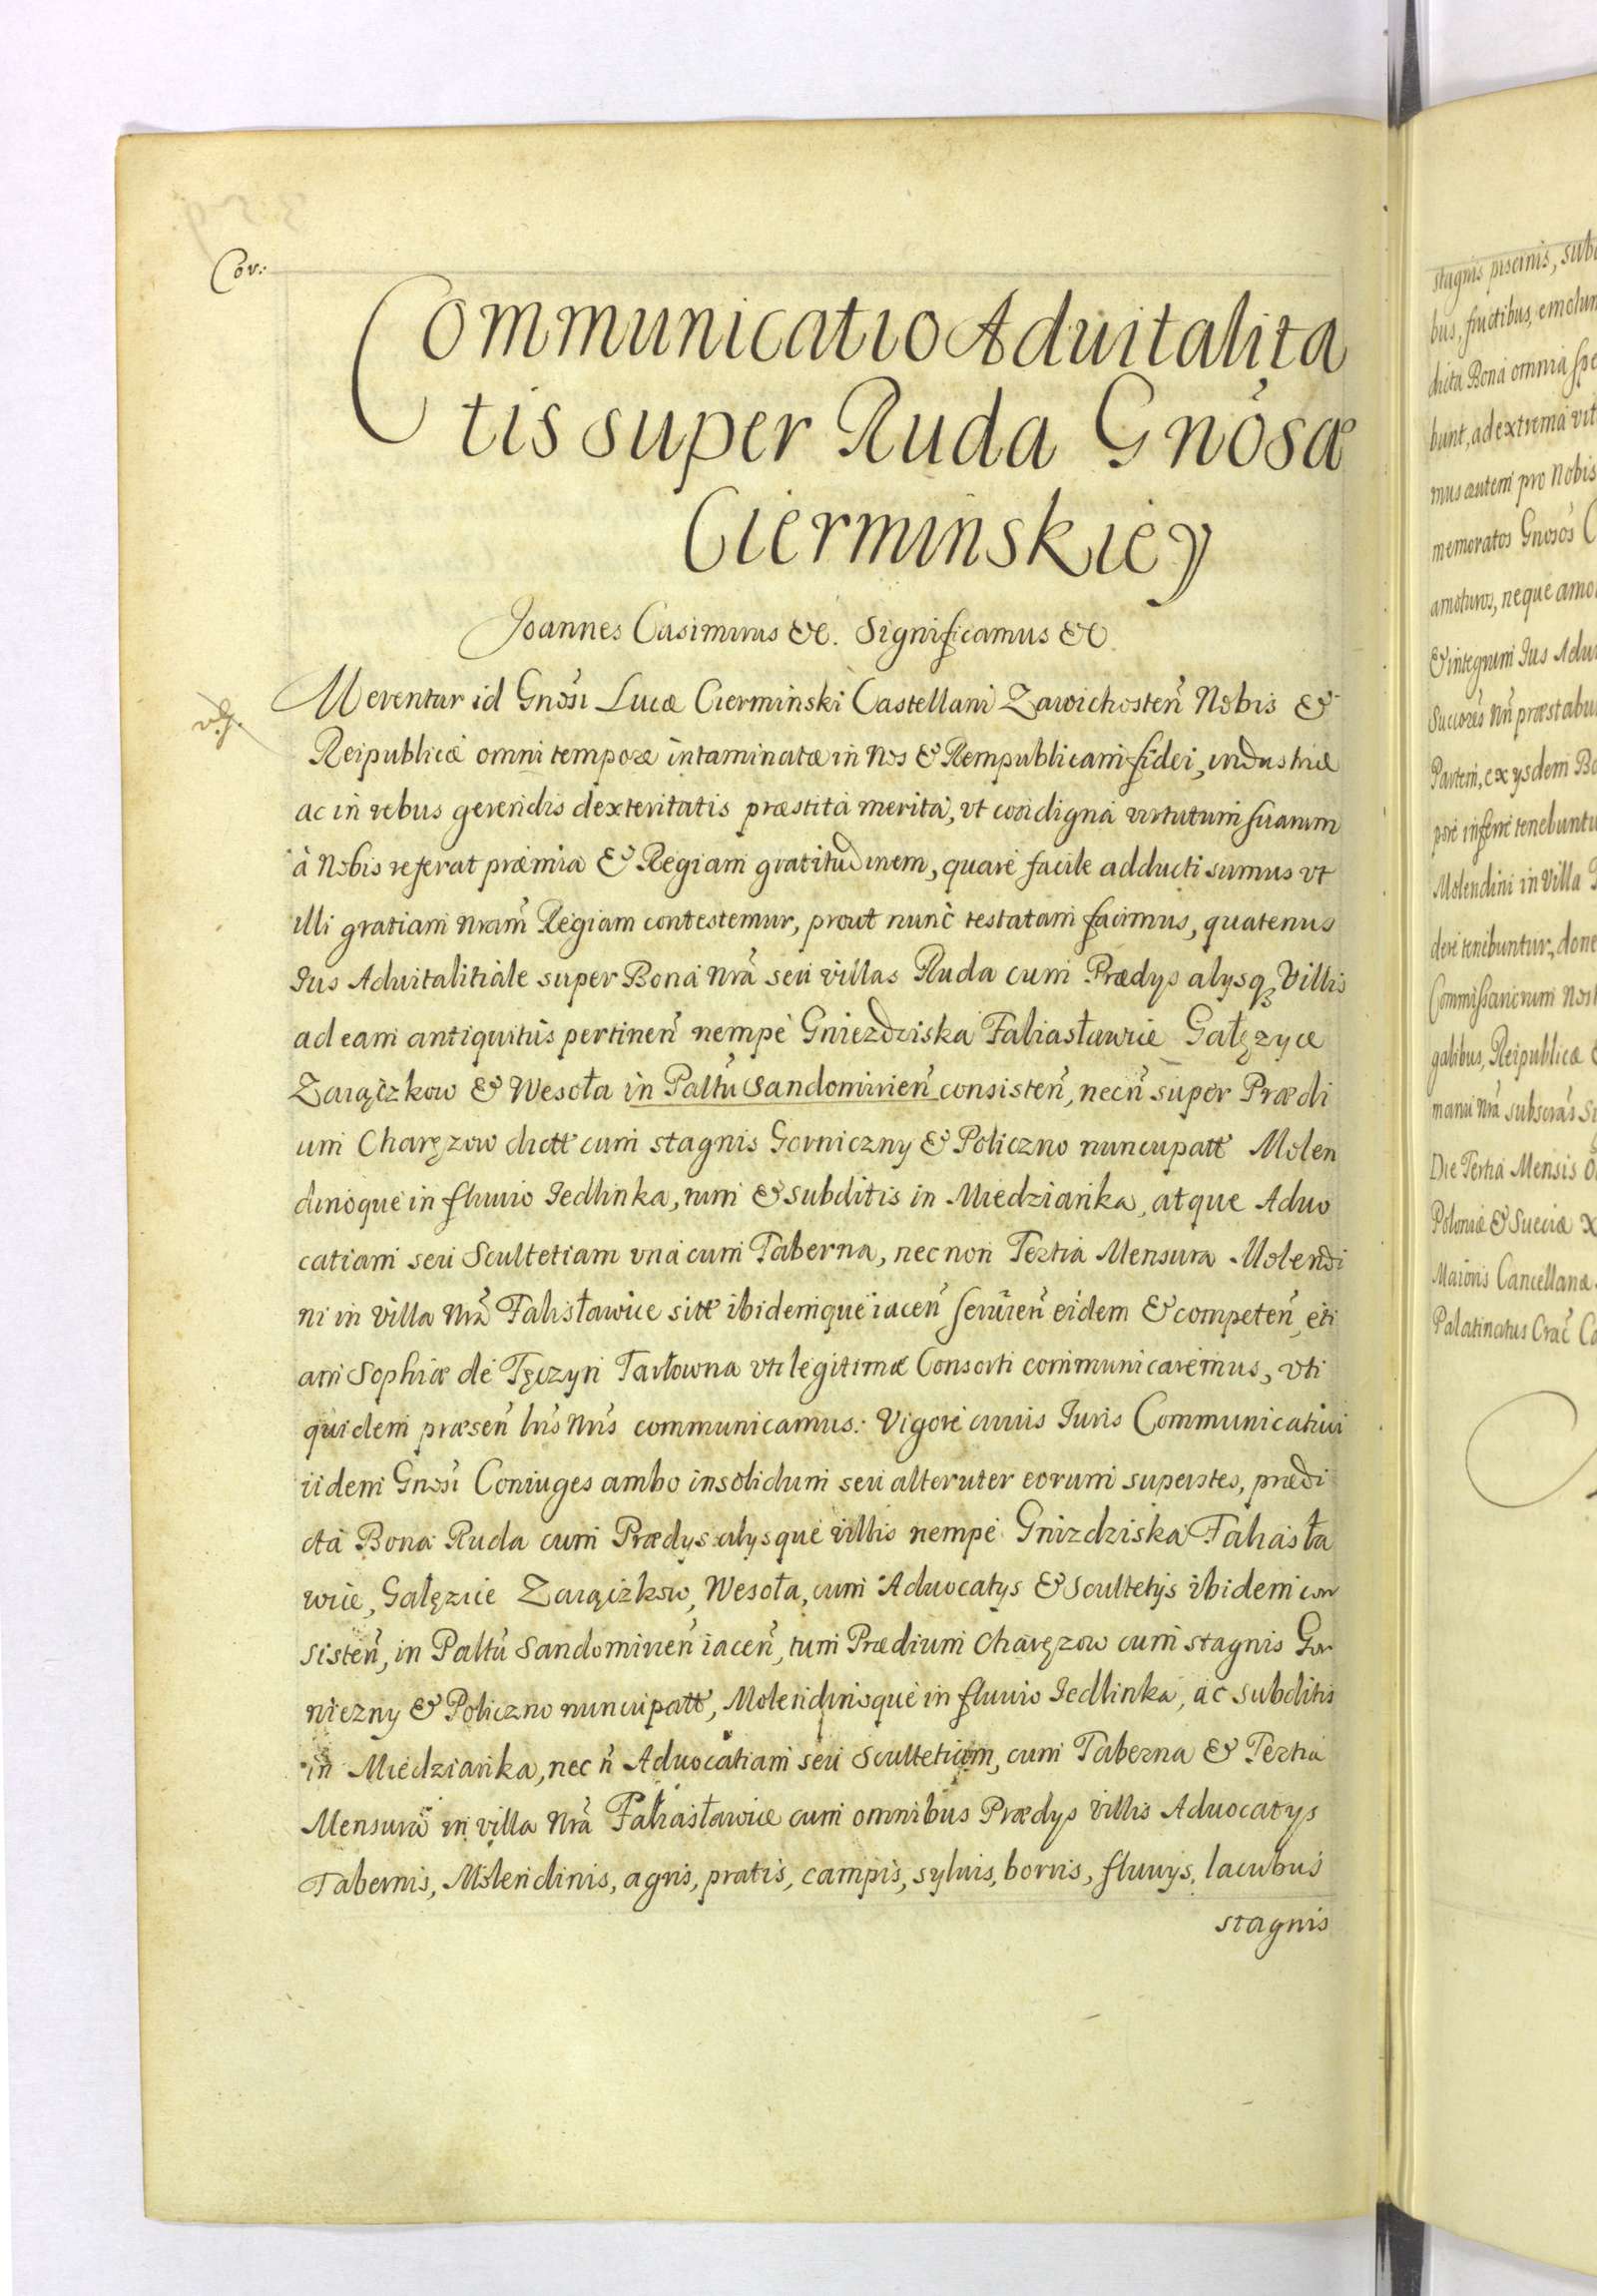 Cor:
Communicatio Aduitalita
tis super Ruda Gnosæ
Cierminskiey
Joannes Casimirus &c. Significamus &c
Merentur id Gnosi Lucæ Cierminski Castellani Zawichosteń Nobis &
Reipublicæ omni tempore intaminatæ in Nos & Rempublicam fidei, industriæ
ac in rebus gerendis dexteritatis præstita merita, vt condigna virtutum suarum
à Nobis referat præmia & Regiam gratitudinem, quare facile adducti sumus vt
illi gratiam nram Regiam contestemur, prout nunc testatam facimus, quatenus
Jus Aduitalitiale super Bona nra seu villas Ruda cum Prædys alysq Villis
ad eam antiquitus pertineń nempe Gniezdziska Faliasławice Gałęzyce
Zaiączkow & Wesoła in Paltu Sandomirień consisteń, necń super Prædi
um Charęzow dictt cum stagnis Gorniczny & Policzno nuncupatt Molen
dinoque in fluuio Jedlinka, tum & subditis in Miedzianka, atque Aduo
catiam seu Scultetiam vna cum Taberna, nec non Tertia Mensura Molendi
ni in Villa Nra Falisławice sitt ibidemque iaceń seruień eidem & competeń, eti
am Sophiæ de Tęczyn Tarłowna vti legitimæ Consorti communicaremus, vti
quidem præseń lris nris communicamus: Vigore cuius Juris Communicatiui
iidem Gnosi Coniuges ambo insolidum seu alteruter eorum superstes, prædi
cta Bona Ruda cum Prædys alysque villis nempe Gnizdziska Faliasła
wice, Gałęzice Zaiączkow, Wesoła, cum Aduocatys & Scultetys ibidem con
sisteń, in Paltu Sandomirień iaceń, tum Prædium Charęzow cum stagnis Gor
niczny & Policzno nuncupatt, Molendinoque in fluuio Jedlinka, ac subditis
in Miedzianka, nec ń Aduocatiam seu Scultetiam, cum Taberna & Tertia
Mensura in villa Nra Faliasławice cum omnibus Prædys Villis Aduocatys
Tabernis, Molendinis, agris, pratis, campis, syluis, borris, fluuys, lacubus
stagnis
stagnis piscinis,
bus, fructibus,
dicta Bona omnia
bunt, ad extrema
mus autem pro Nobis
memoratos Gnosos
amoturos, neque
& integrum Jus
præstabu
Partem, ex ysdem
inferre tenebuntu
Molendini in Villa
tenebuntur, done
Commissariorum
galibus, Reipublicæ
manu nra
Die Tertia Mensis
Poloniæ & Sueciæ
Maioris Cancellariæ
Palatinatus Crac